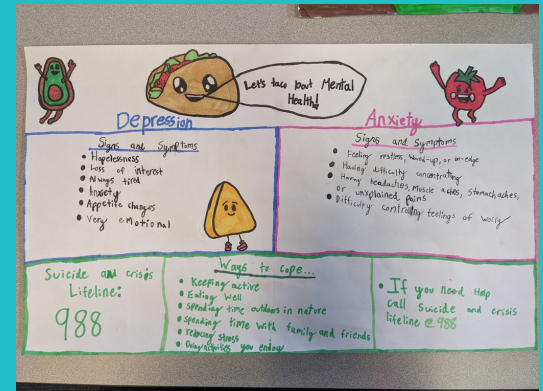 Let's taco bout Mental
Health!
Depression
Signs and Symptoms
• Hopelessness
• Loss of interest
• Always tired
• Anxiety
• Appetite changes
• Very emotional
Anxiety
Signs and Symptoms
• Feeling restless, wound-up, or on-edge
• Having difficulty concentrating
• Having headaches, muscle aches, stomachaches,
or unexplained pains
• Difficulty controlling feelings of worry
Suicide and crisis
Lifeline:
988
Ways to cope...
• Keeping active
• Eating well
• spending time outdoors in nature
• spending time with family and friends
• reducing stress
• Doing activities you enjoy
• If you need help
call suicide and crisis
lifeline @ 988